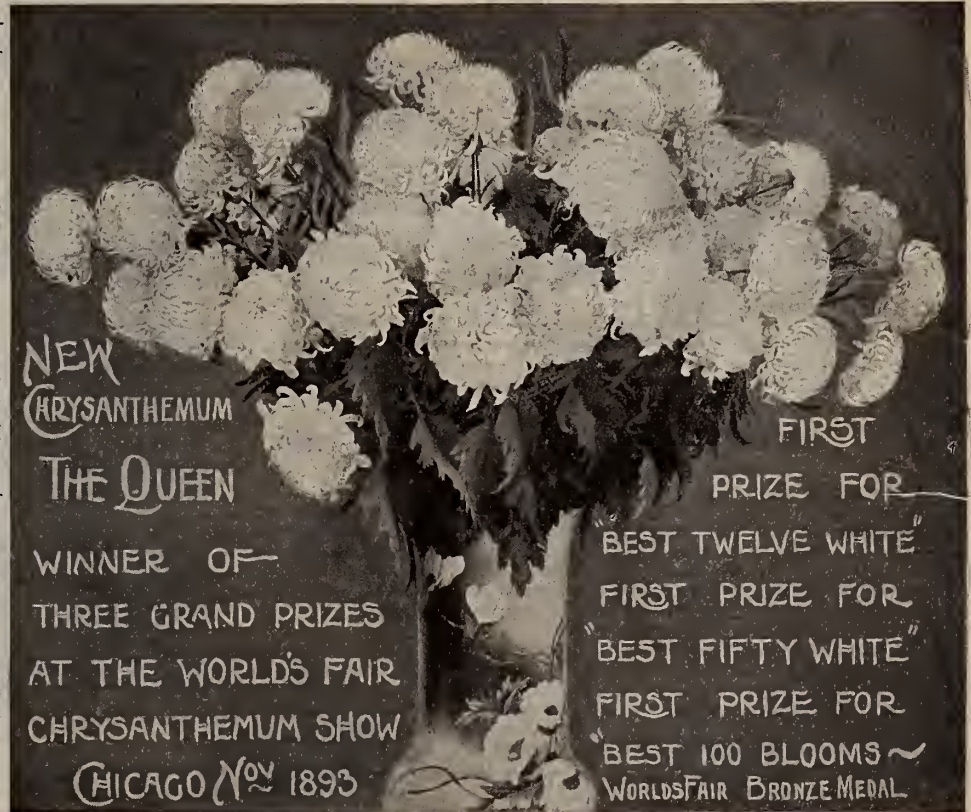 NEW
CHRYSANTHEMUM
THE QUEEN
WINNER OF
THREE GRAND PRIZES
AT THE WORLD'S FAIR
CHRYSANTHEMUM SHOW
CHICAGO NOV 1893
FIRST
PRIZE FOR
"BEST TWELVE WHITE"
FIRST PRIZE FOR
"BEST FIFTY WHITE"
FIRST PRIZE FOR
"BEST 100 BLOOMS~
WORLDS FAIR BRONZE MEDAL